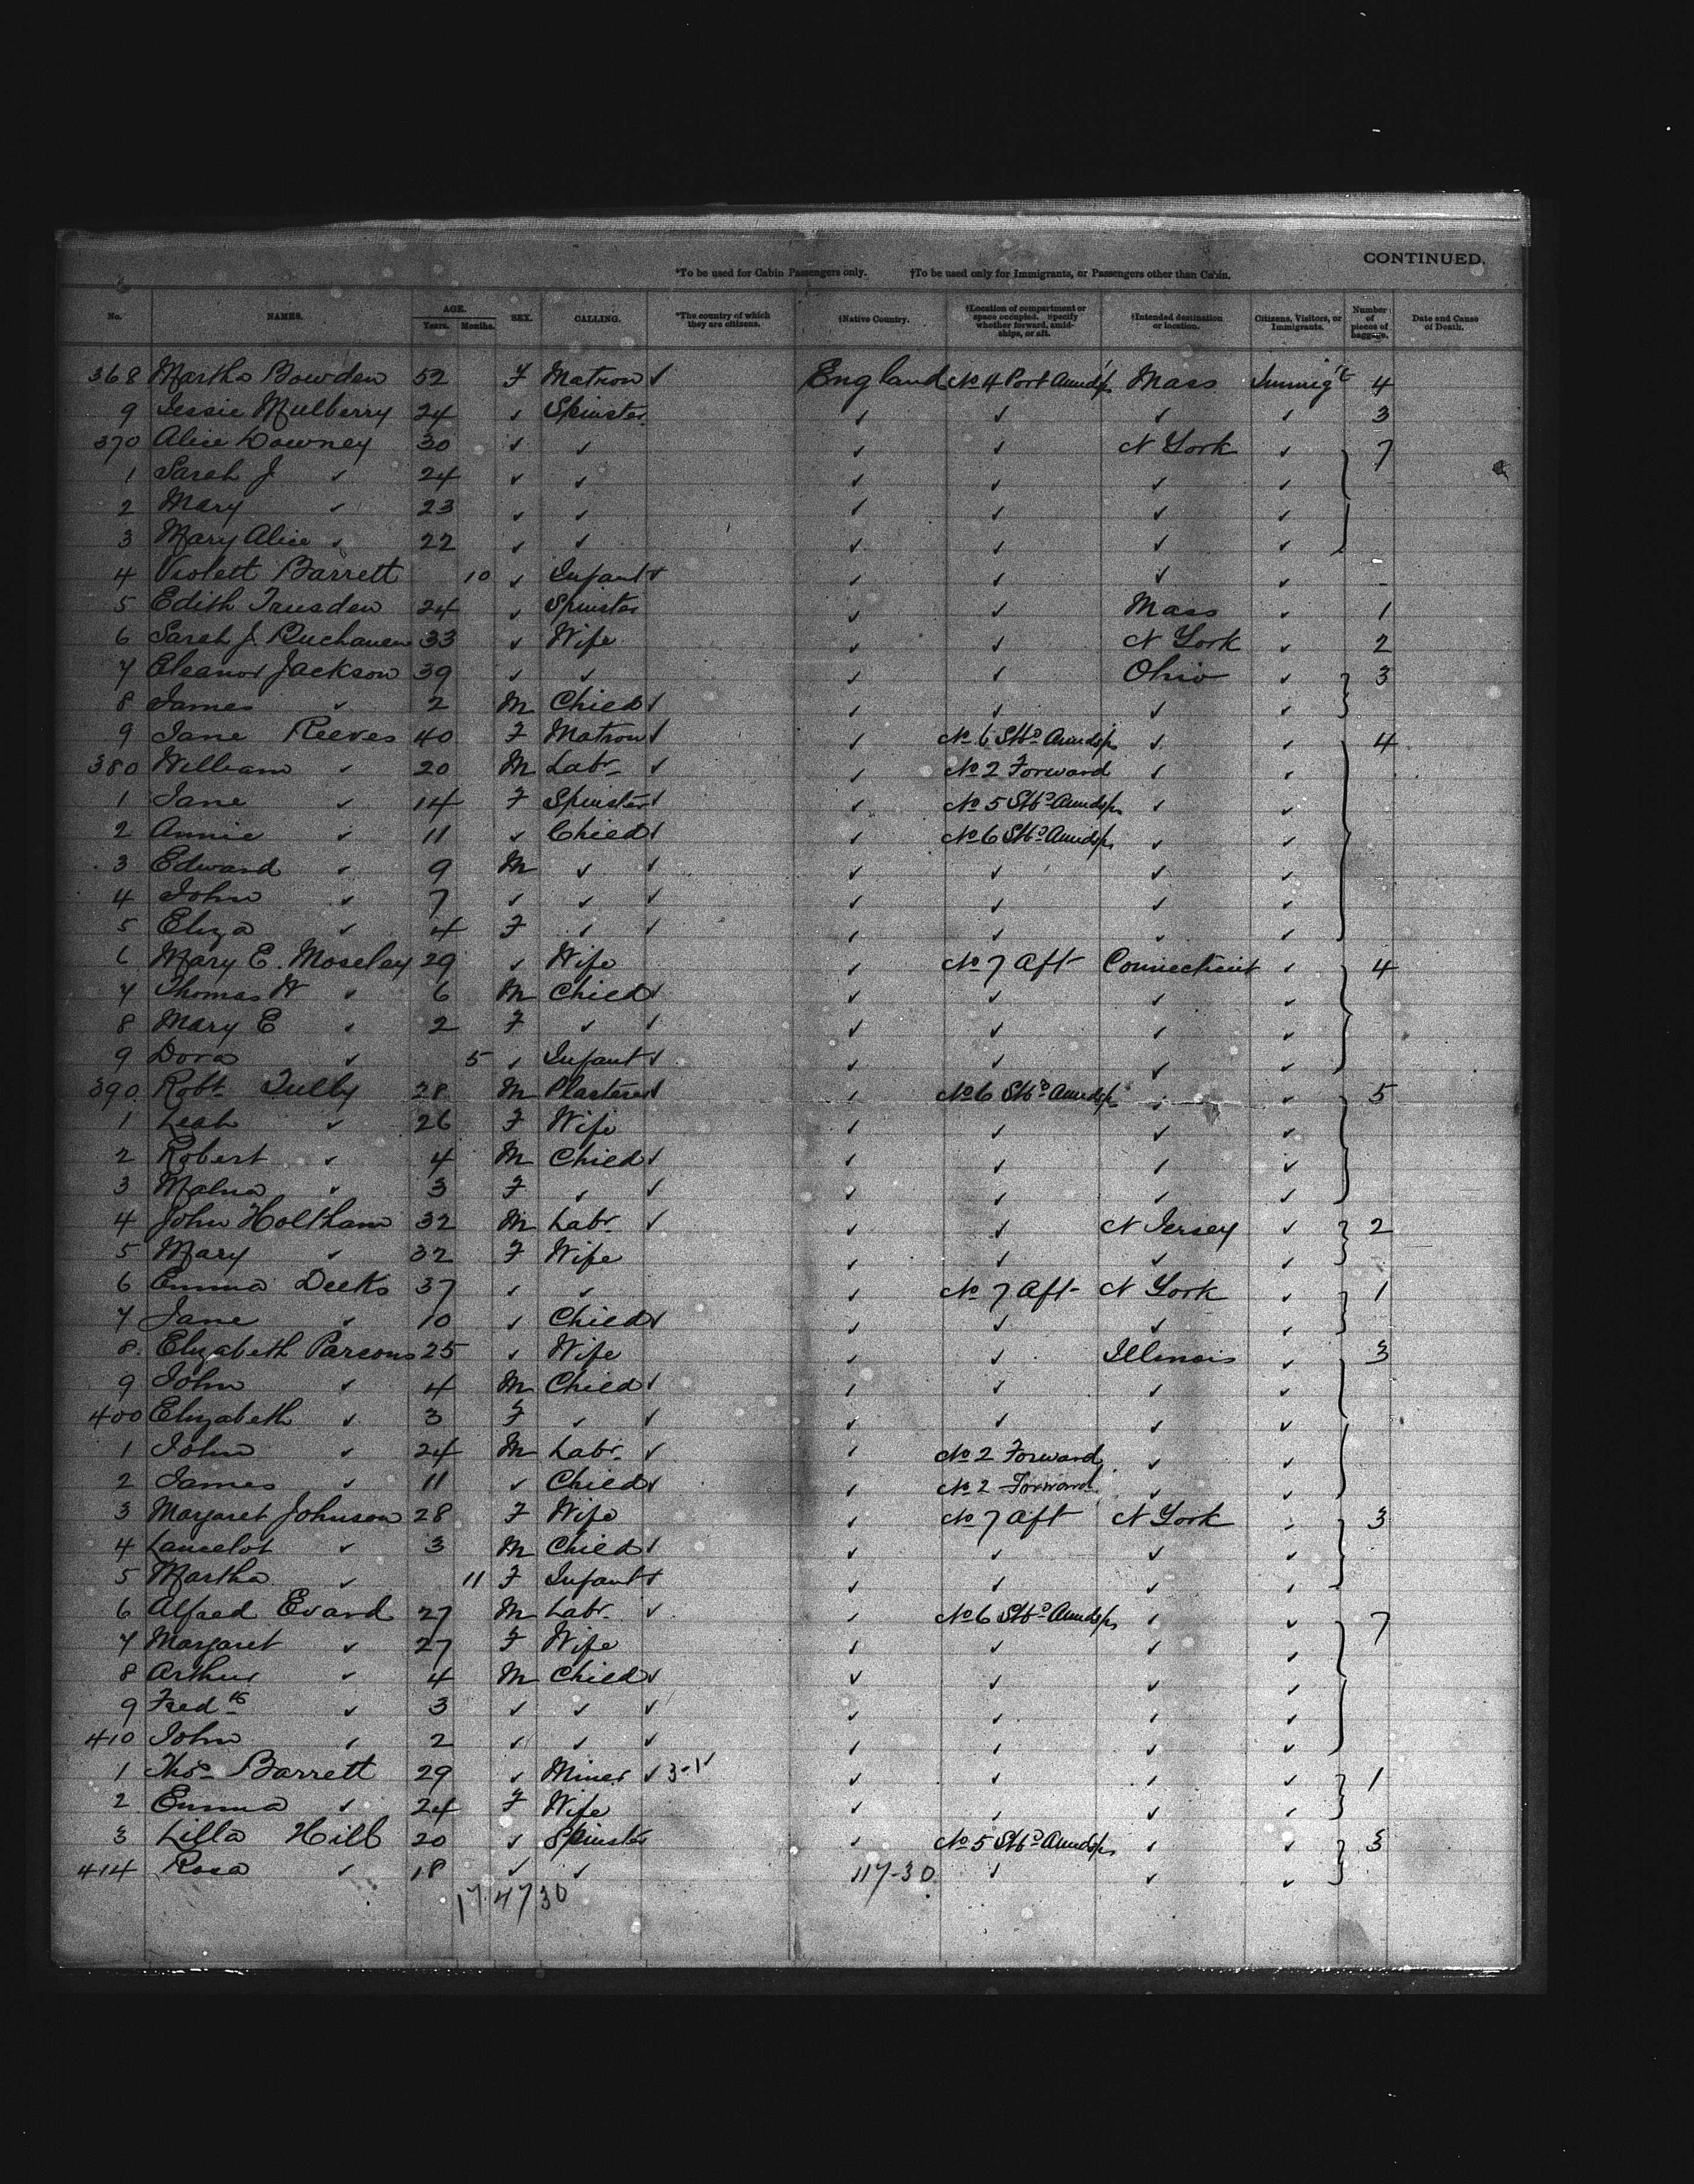 CONTINUED.
*To be used for Cabin Passengers only. †To be used only for Immigrants, or Passengers other than Cabin.
No. NAMES. AGE. Years. Months. SEX. CALLING. *The country of which they are citizens. †Native Country. †Location of compartment or space occupied. Specify whether forward, amidships, or aft. †Intended destination or location. Citizens, Visitors, or Immigrants. Number of pieces of baggage. Date and Cause of Death.
368 Martha Bowden 52 F Matron ✓ England No 4 Port Amidsps Mass Immigt 4
9 Jessie Mulberry 24 ✓ Spinster ✓ ✓ ✓ ✓ 3
370 Alice Downey 30 ✓ ✓ ✓ ✓ N York ✓ 7
1 Sarah J ✓ 24 ✓ ✓ ✓ ✓ ✓ ✓
2 Mary ✓ 23 ✓ ✓ ✓ ✓ ✓ ✓
3 Mary Alice ✓ 22 ✓ ✓ ✓ ✓ ✓ ✓
4 Violett Barrett 10 ✓ Infant ✓ ✓ ✓ ✓ ✓ -
5 Edith Truesden 24 ✓ Spinster ✓ ✓ Mass ✓ 1
6 Sarah J. Buchanen 33 ✓ Wife ✓ ✓ N York ✓ 2
7 Eleanor Jackson 39 ✓ ✓ ✓ ✓ Ohio ✓ 3
8 James ✓ 2 M Child ✓ ✓ ✓ ✓ ✓
9 Jane Reeves 40 F Matron ✓ ✓ No 6 Stbd Amidsps ✓ ✓ 4
380 William ✓ 20 M Labr ✓ ✓ No 2 Forward ✓ ✓
1 Jane ✓ 14 F Spinster ✓ ✓ No 5 Stbd Amidsps ✓ ✓
2 Annie ✓ 11 ✓ Child ✓ ✓ No 6 Stbd Amidsps ✓ ✓
3 Edward ✓ 9 M ✓ ✓ ✓ ✓ ✓ ✓
4 John ✓ 7 ✓ ✓ ✓ ✓ ✓ ✓ ✓
5 Eliza ✓ 4 F ✓ ✓ ✓ ✓ ✓ ✓
6 Mary E. Moseley 29 ✓ Wife ✓ No 7 Aft Connecticut ✓ 4
7 Thomas W ✓ 6 M Child ✓ ✓ ✓ ✓ ✓
8 Mary E ✓ 2 F ✓ ✓ ✓ ✓ ✓ ✓
9 Dora ✓ 5 ✓ Infant ✓ ✓ ✓ ✓ ✓
390 Robt Tully 28 M Plasterer ✓ ✓ No 6 Stbd Amidsps ✓ ✓ 5
1 Leah ✓ 26 F Wife ✓ ✓ ✓ ✓
2 Robert ✓ 4 M Child ✓ ✓ ✓ ✓ ✓
3 Malna ✓ 3 F ✓ ✓ ✓ ✓ ✓ ✓
4 John Holtham 32 M Labr ✓ ✓ ✓ N Jersey ✓ 2
5 Mary ✓ 32 F Wife ✓ ✓ ✓ ✓
6 Emma Deeks 37 ✓ ✓ ✓ No 7 Aft N York ✓ 1
7 Jane ✓ 10 ✓ Child ✓ ✓ ✓ ✓ ✓
8. Elizabeth Parsons 25 ✓ Wife ✓ ✓ Illinois ✓ 3
9 John ✓ 4 M Child ✓ ✓ ✓ ✓ ✓
400 Elizabeth ✓ 3 F ✓ ✓ ✓ ✓ ✓ ✓
1 John ✓ 24 M Labr ✓ ✓ No 2 Forward ✓ ✓
2 James ✓ 11 ✓ Child ✓ ✓ No 2 Forward ✓ ✓
3 Margaret Johnson 28 F Wife ✓ No 7 Aft N York ✓ 3
4 Lancelot ✓ 3 M Child ✓ ✓ ✓ ✓ ✓
5 Martha ✓ 11 F Infant ✓ ✓ ✓ ✓ ✓
6 Alfred Evard 27 M Labr ✓ ✓ No 6 Stbd Amidsps ✓ ✓ 7
7 Margaret ✓ 27 F Wife ✓ ✓ ✓ ✓
8 Arthur ✓ 4 M Child ✓ ✓ ✓ ✓ ✓
9 Fredk ✓ 3 ✓ ✓ ✓ ✓ ✓ ✓ ✓
410 John ✓ 2 ✓ ✓ ✓ ✓ ✓ ✓ ✓
1 Thos Barrett 29 ✓ Miner ✓ 3-1 ✓ ✓ ✓ ✓ ✓ 1
2 Emma ✓ 24 F Wife ✓ ✓ ✓ ✓
3 Lilla Hill 20 ✓ Spinster ✓ No 5 Stbd Amidsps ✓ ✓ 3
414 Rosa ✓ 18 ✓ ✓ 117-30 ✓ ✓ ✓
17 47 30